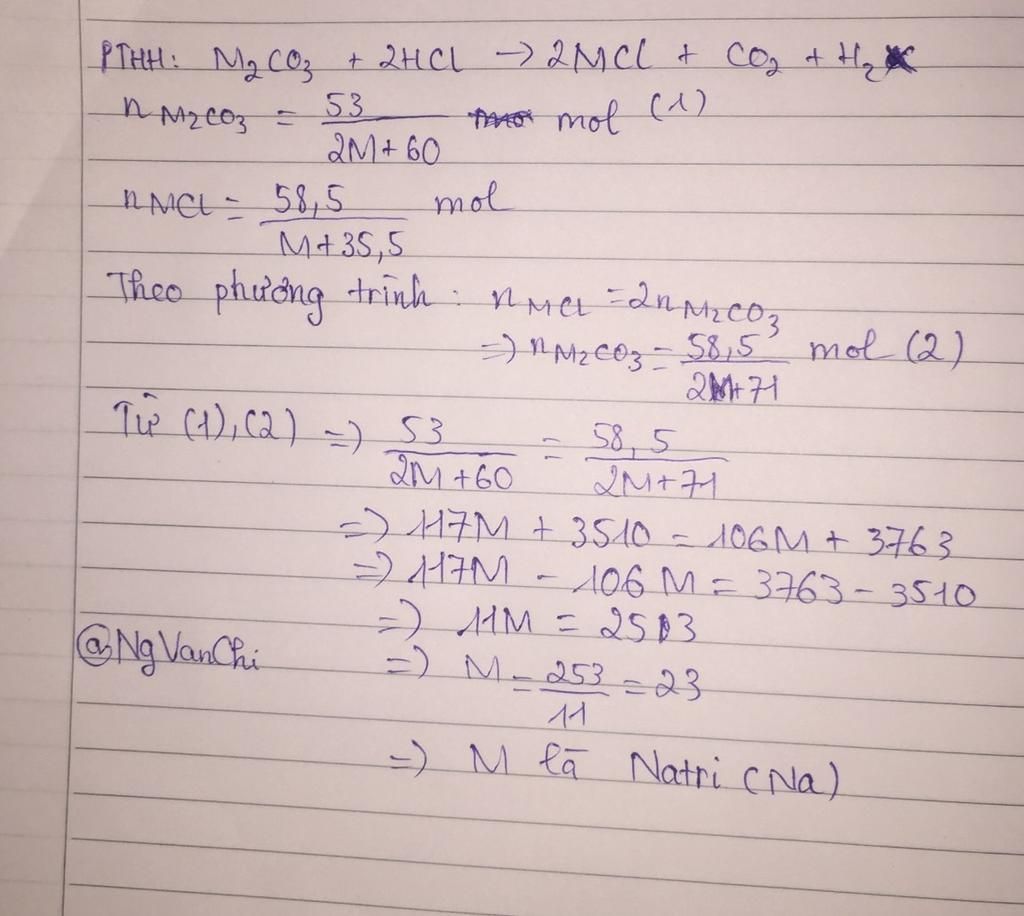 PTHH: M2CO3 + 2HCl → 2MCl + CO2 + H2
nM2CO3 = 53 / 2M+60 mol (1)
nMCl = 58,5 / M+35,5 mol
Theo phương trình: nMCl = 2nM2CO3
=> nM2CO3 = 58,5 / 2M+71 mol (2)
Từ (1),(2) => 53 / 2M+60 = 58,5 / 2M+71
=> 117M + 3510 = 106M + 3763
=> 117M - 106M = 3763 - 3510
=> 11M = 253
@NgVanChi
=> M = 253 / 11 = 23
=> M là Natri (Na)